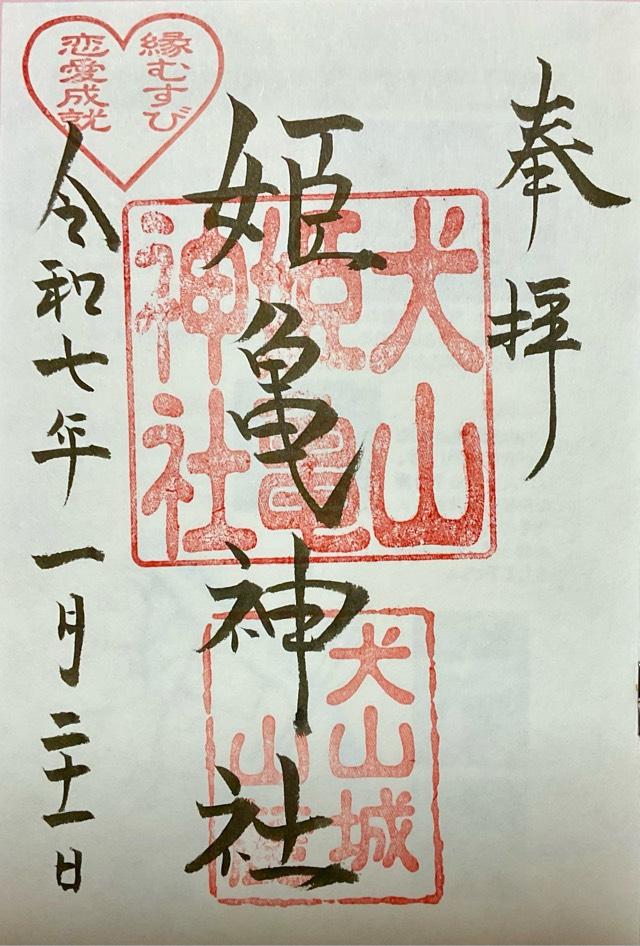 奉拝
犬山
姫亀
神社
姫亀神社
犬山城
山麓
縁むすび
恋愛成就
令和七年一月二十一日